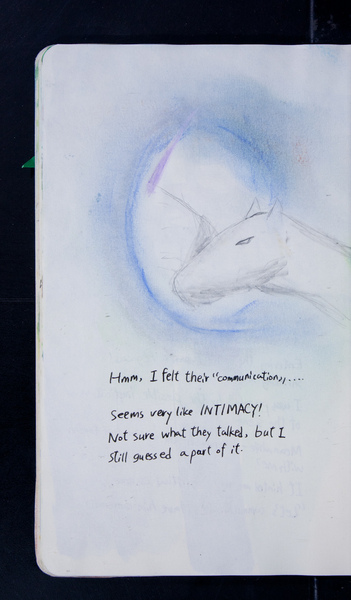 Hmm, I felt their "communication,,....
seems very like INTIMACY!
Not sure what they talked, but I
still guessed a part of it.